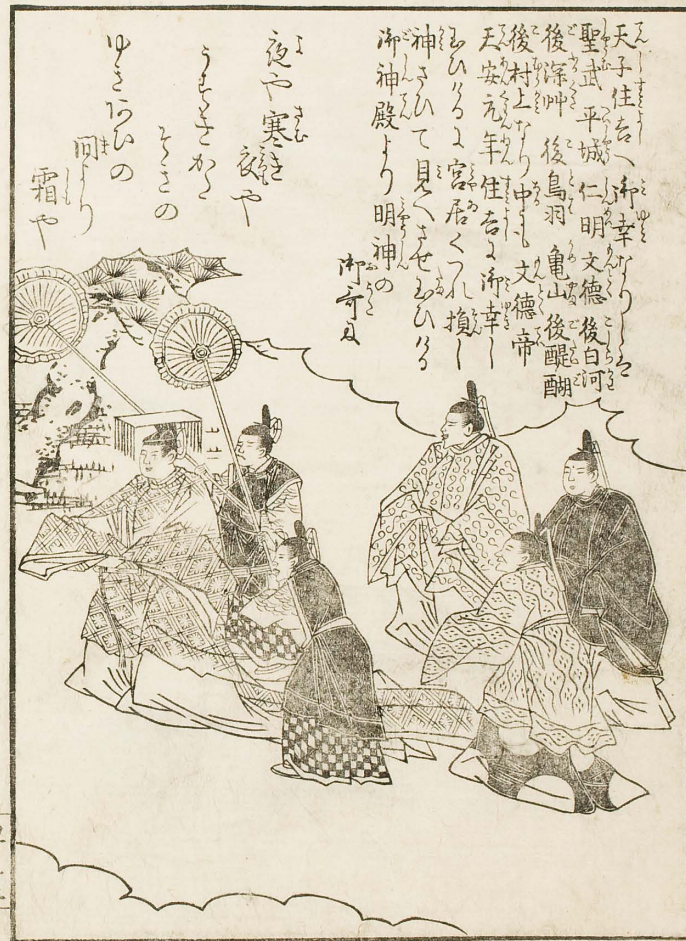 天子住吉へ御幸なりしは
聖武 平城 仁明 文徳 後白河
後深艸 後鳥羽 亀山 後醍醐
後村上なり中にも文徳帝
天安元年住吉に御幸し
玉ひけるに宮居くつれ損し
神さひて見へさせ玉ひける
御神殿より明神の
御哥に
夜や寒き衣や
うすきかた
そきの
ゆきあひの
間より
霜や